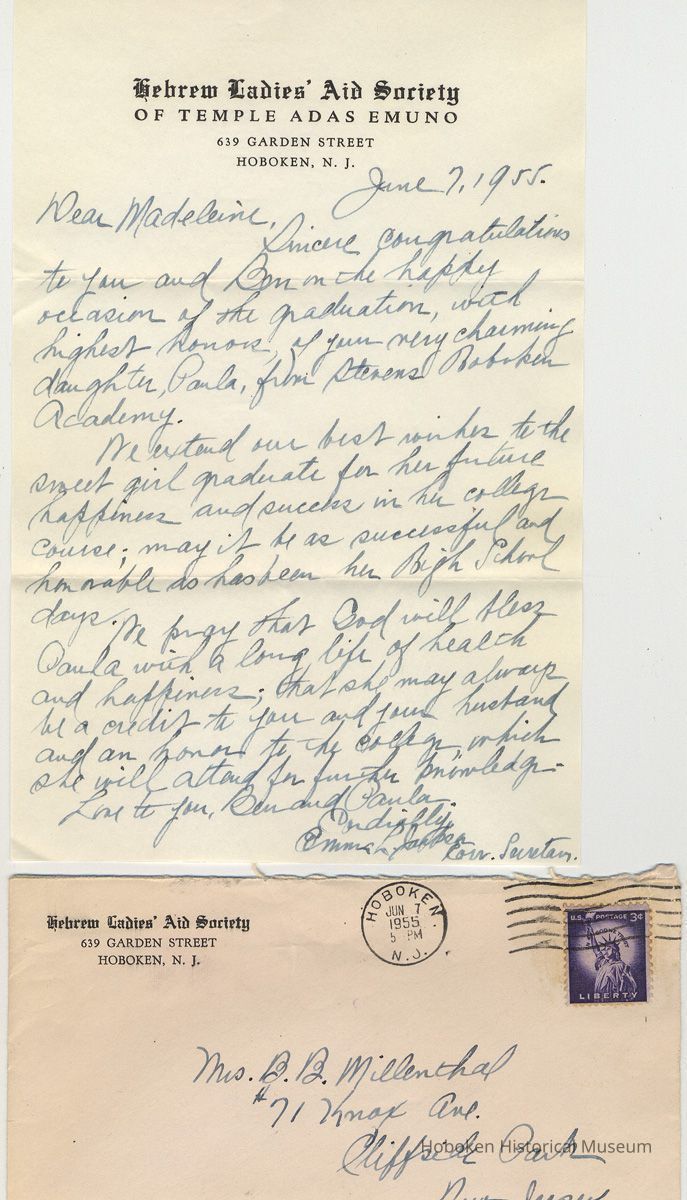 Hebrew Ladies' Aid Society
OF TEMPLE ADAS EMUNO
639 GARDEN STREET
HOBOKEN, N. J.
June 7, 1955.
Dear Madeleine,
Sincere congratulations
to you and Ben on the happy
occasion of the graduation, with
highest honors, of your very charming
daughter, Paula, from Stevens Hoboken
Academy.
We extend our best wishes to the
sweet girl graduate for her future
happiness and success in her college
course; may it be as successful and
honorable as has been her High School
days.
We pray that God will bless
Paula with a long life of health
and happiness; that she may always
be a credit to you and your husband
and an honor to the college, which
she will attend for further knowledge.
Love to you, Ben and Paula.
Cordially,
Emma L.
Corr. Secretary.
Hebrew Ladies' Aid Society
639 GARDEN STREET
HOBOKEN, N. J.
HOBOKEN,
JUN 7
1955
5 PM
N.J.
U.S. POSTAGE 3¢
LIBERTY
Mrs. B. B. Millenthal
#71 Knox Ave.
Cliffside Park
New Jersey
Hoboken Historical Museum